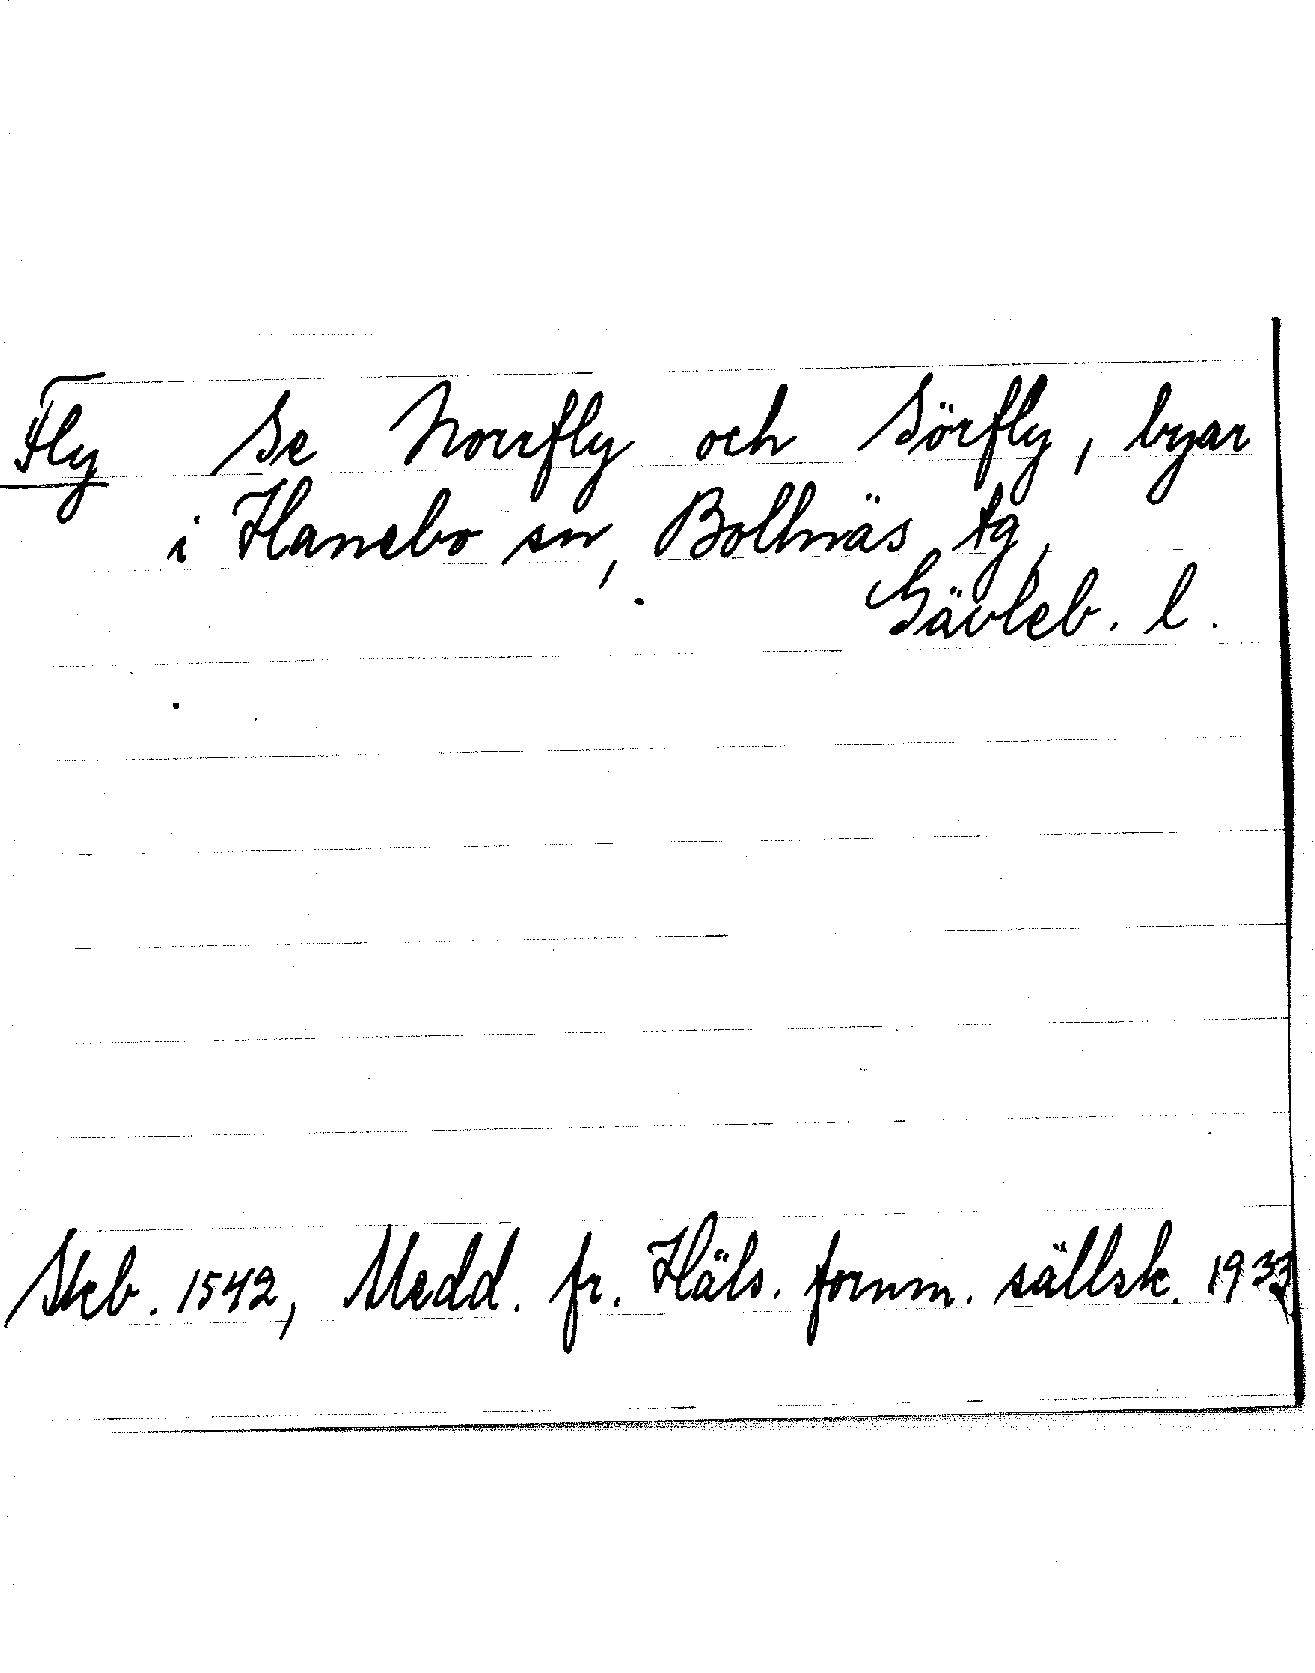 Fly Se Norrfly och Sörfly, byar
i Hanebo sn, Bollnäs tg,
Gävleb. l.
Skb. 1542, Medd. fr. Häls. fornm. sällsk. 1933